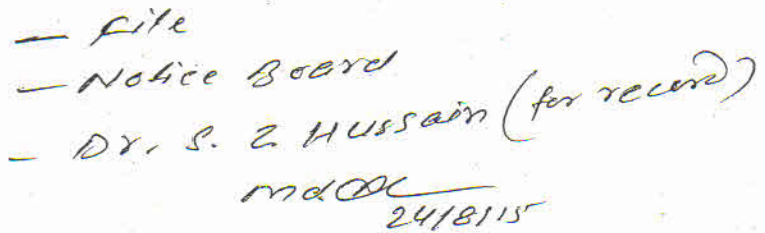 — File
— Notice Board
- Dr. S. Z Hussain (for record)
24/8/15